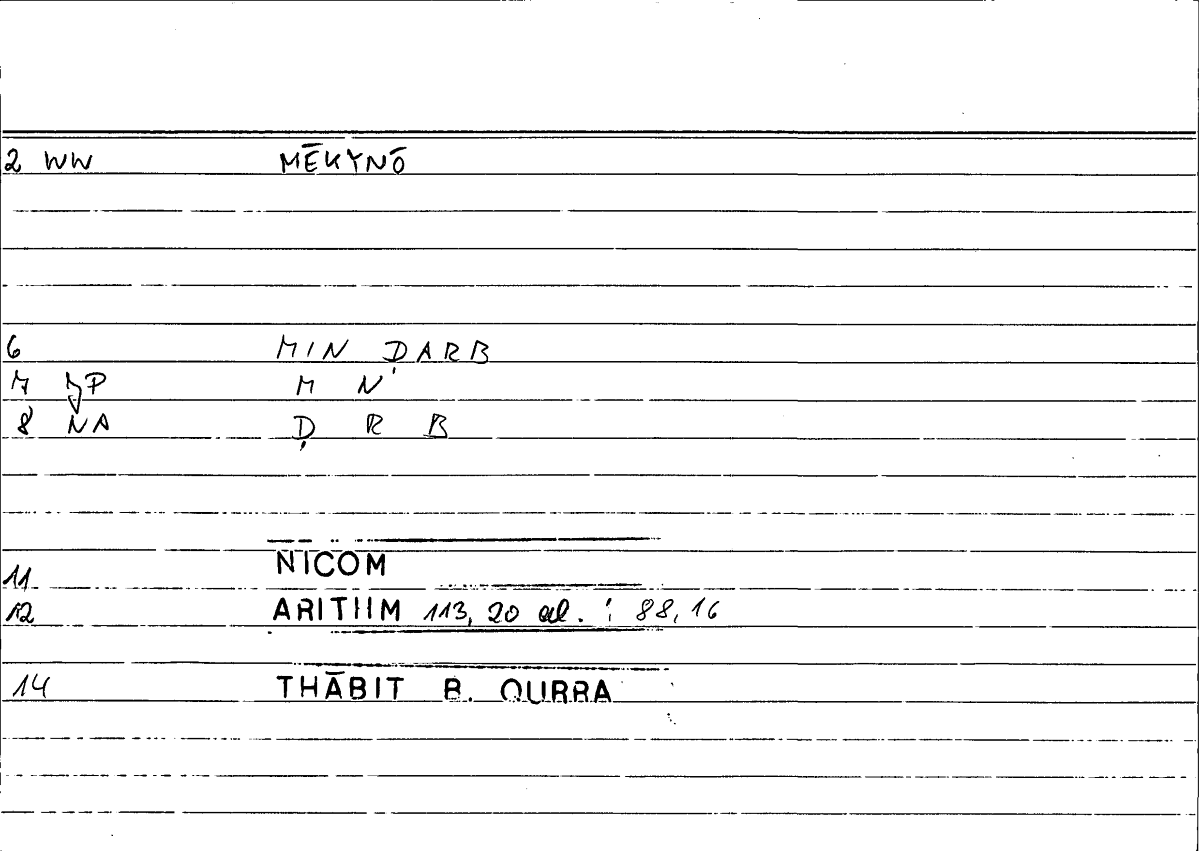 2 WW MĒKYNŌ
6 MIN ḌARB
7 JP M N
8 NA Ḍ R B
11 NICOM
12 ARITHM 113, 20 al. : 88, 16
14 THĀBIT B. QURRA